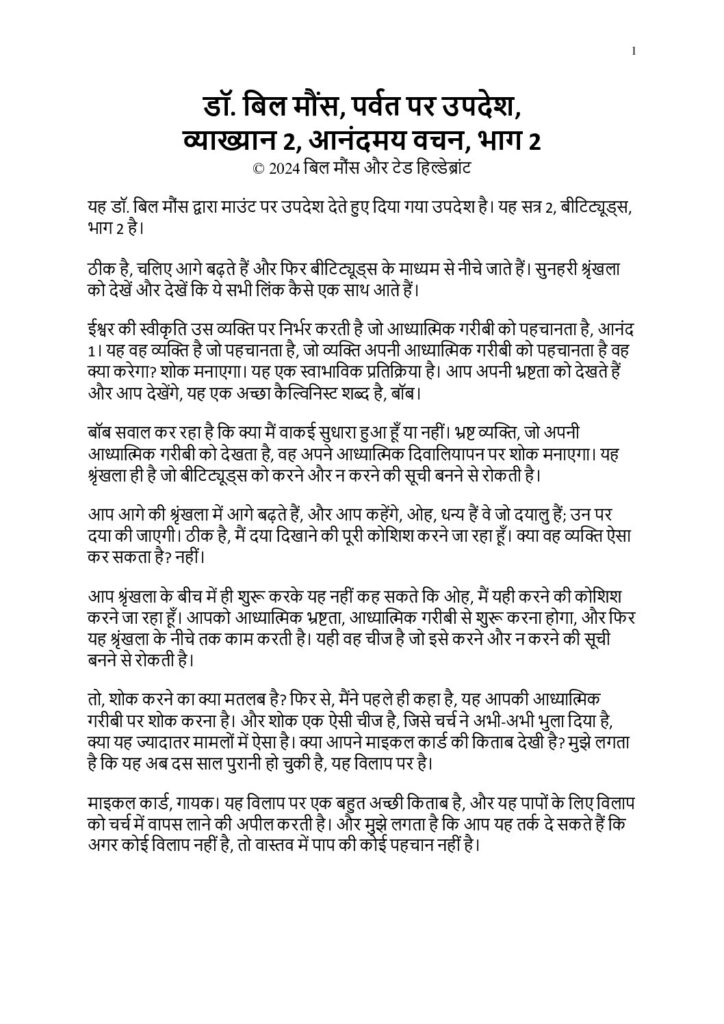 1
डॉ. बिल मौंस, पर्वत पर उपदेश,
व्याख्यान 2, आनंदमय वचन, भाग 2
© 2024 बिल मौंस और टेड हिल्डेब्रांट
यह डॉ. बिल मौंस द्वारा माउंट पर उपदेश देते हुए दिया गया उपदेश है। यह सत्र 2, बीटिट्यूड्स,
भाग 2 है।
ठीक है, चलिए आगे बढ़ते हैं और फिर बीटिट्यूड्स के माध्यम से नीचे जाते हैं। सुनहरी श्रृंखला
को देखें और देखें कि ये सभी लिंक कैसे एक साथ आते हैं।
ईश्वर की स्वीकृति उस व्यक्ति पर निर्भर करती है जो आध्यात्मिक गरीबी को पहचानता है, आनंद
1। यह वह व्यक्ति है जो पहचानता है, जो व्यक्ति अपनी आध्यात्मिक गरीबी को पहचानता है वह
क्या करेगा? शोक मनाएगा। यह एक स्वाभाविक प्रतिक्रिया है। आप अपनी भ्रष्टता को देखते हैं
और आप देखेंगे, यह एक अच्छा कैल्विनिस्ट शब्द है, बॉब।
बॉब सवाल कर रहा है कि क्या मैं वाकई सुधारा हुआ हूँ या नहीं। भ्रष्ट व्यक्ति, जो अपनी
आध्यात्मिक गरीबी को देखता है, वह अपने आध्यात्मिक दिवालियापन पर शोक मनाएगा। यह
श्रृंखला ही है जो बीटिट्यूड्स को करने और न करने की सूची बनने से रोकती है।
आप आगे की श्रृंखला में आगे बढ़ते हैं, और आप कहेंगे, ओह, धन्य हैं वे जो दयालु हैं; उन पर
दया की जाएगी। ठीक है, मैं दया दिखाने की पूरी कोशिश करने जा रहा हूँ। क्या वह व्यक्ति ऐसा
कर सकता है? नहीं।
आप श्रृंखला के बीच में ही शुरू करके यह नहीं कह सकते कि ओह, मैं यही करने की कोशिश
करने जा रहा हूँ। आपको आध्यात्मिक भ्रष्टता, आध्यात्मिक गरीबी से शुरू करना होगा, और फिर
यह श्रृंखला के नीचे तक काम करती है। यही वह चीज है जो इसे करने और न करने की सूची
बनने से रोकती है।
तो, शोक करने का क्या मतलब है? फिर से, मैंने पहले ही कहा है, यह आपकी आध्यात्मिक
गरीबी पर शोक करना है। और शोक एक ऐसी चीज है, जिसे चर्च ने अभी-अभी भुला दिया है,
क्या यह ज्यादातर मामलों में ऐसा है। क्या आपने माइकल कार्ड की किताब देखी है? मुझे लगता
है कि यह अब दस साल पुरानी हो चुकी है, यह विलाप पर है।
माइकल कार्ड, गायक। यह विलाप पर एक बहुत अच्छी किताब है, और यह पापों के लिए विलाप
को चर्च में वापस लाने की अपील करती है। और मुझे लगता है कि आप यह तर्क दे सकते हैं कि
अगर कोई विलाप नहीं है, तो वास्तव में पाप की कोई पहचान नहीं है।